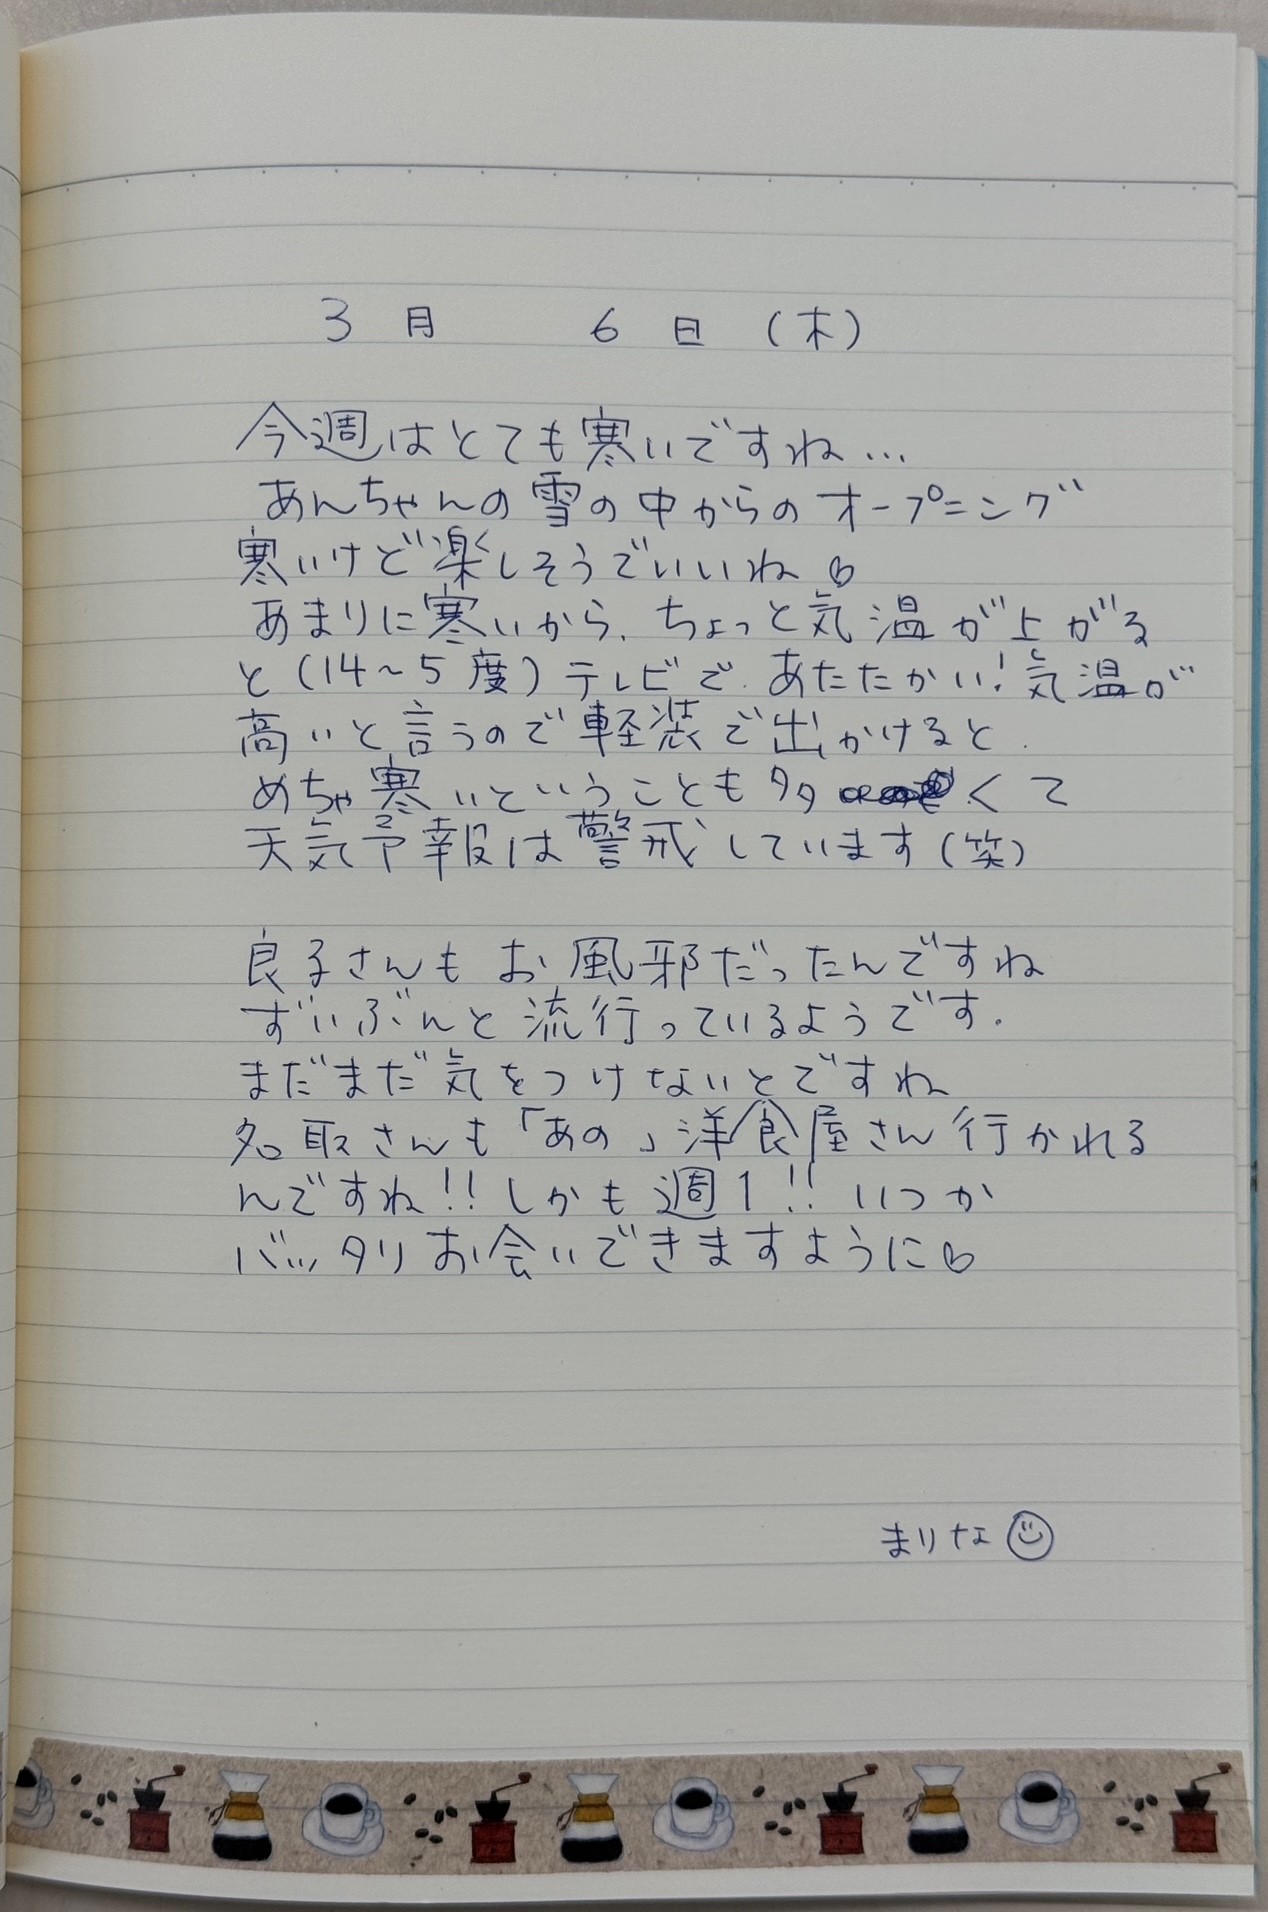 3月 6日(木)
今週はとても寒いですね…
あんちゃんの雪の中からのオープニング
寒いけど楽しそうでいいね♡
あまりに寒いから、ちょっと気温が上がる
と(14~5度)テレビで、あたたかい!気温が
高いと言うので軽装で出かけると、
めちゃ寒いということも多くて
天気予報は警戒しています(笑)
良子さんもお風邪だったんですね
ずいぶんと流行っているようです.
まだまだ気をつけないとですね
名取さんも「あの」洋食屋さん行かれる
んですね!!しかも週1!!いつか
バッタリお会いできますように♡
まりな☺